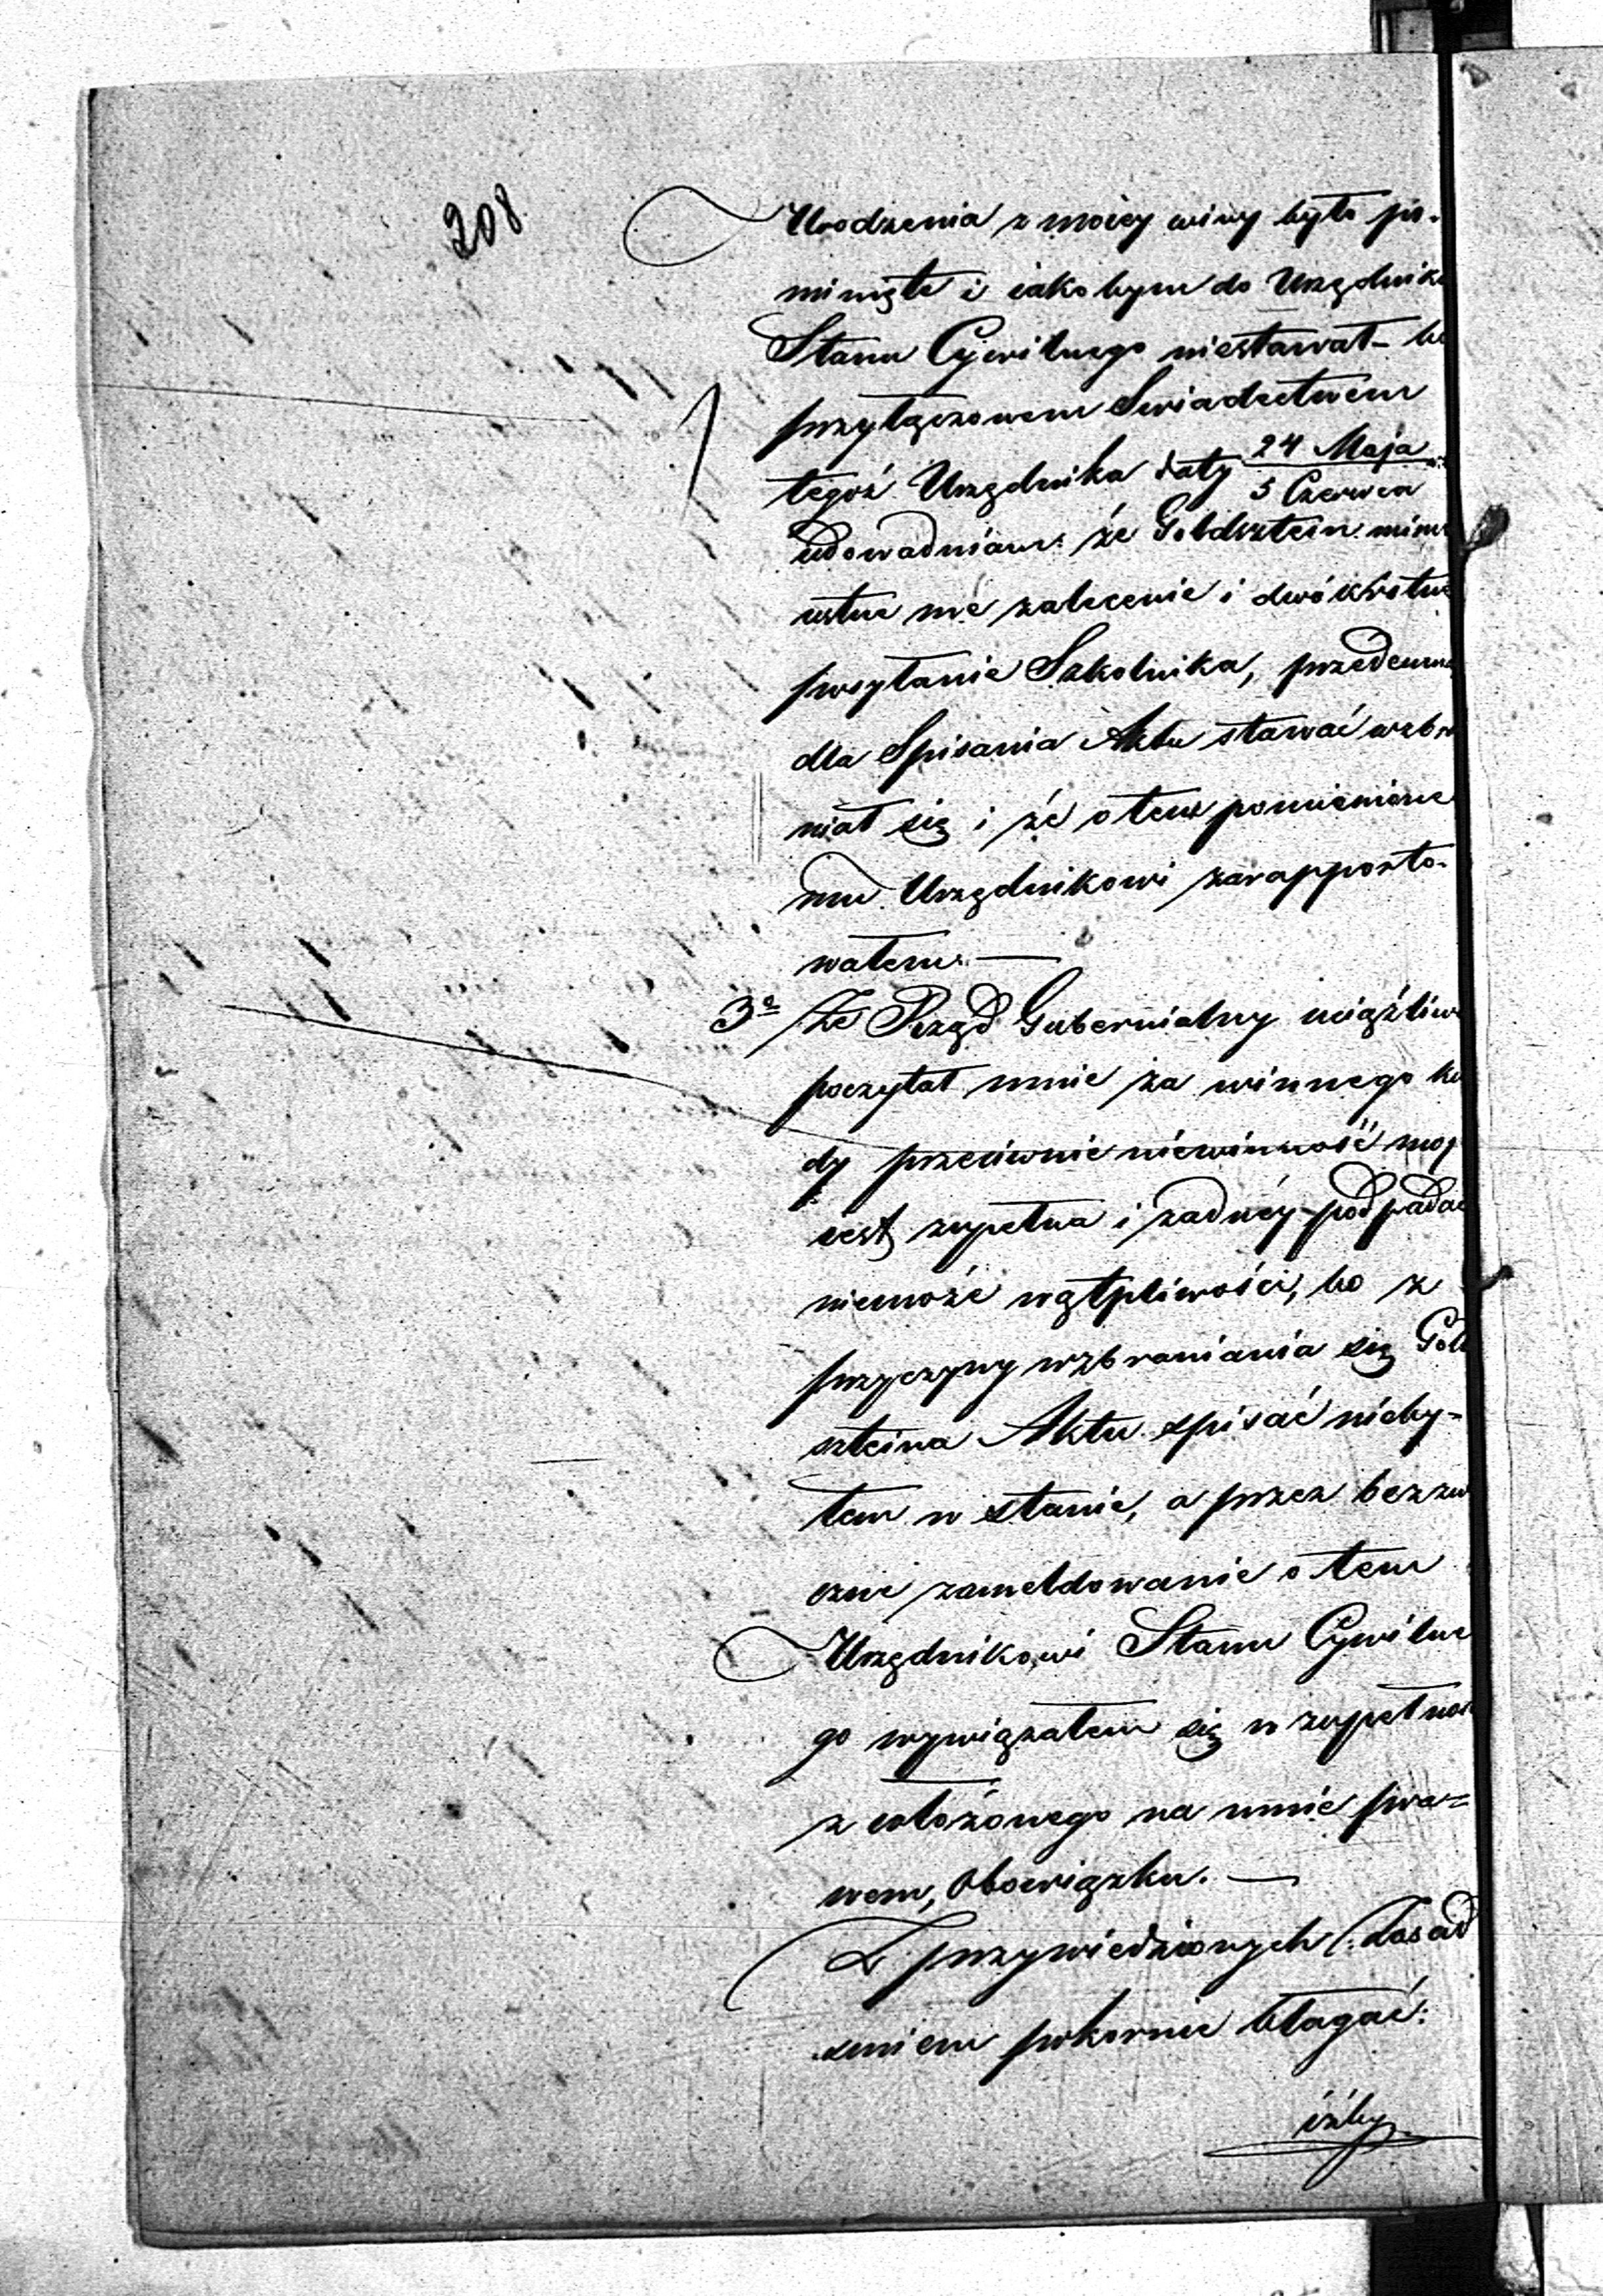 208
Urodzenia z moiey winy było po-
minięte i iakobym do Urzędnika
Stanu Cywilnego niestawał - bo
przyłączonem Swiadectwem
tegoż Urzędnika daty 24 Maja
5 Czerwca
udowadniam: że Goldsztein mimo
ustne me zalecenie i dwókrotne
posyłanie Szkolnika, przedemną
dla Spisania Aktu stawać wzbra
niał się i że o tem pomienione
mu Urzędnikowi zarapporto-
wałem. —
3o Że Rząd Gubernialny uciążliwie
poczytał mnie za winnego kie
dy przeciwnie niewinność moja
iest zupełna i żadnéy podpadać
niemoże wątpliwości, bo z
przyczyny wzbraniania się Gold
szteina Aktu spisać nieby-
łem w stanie, a przez bezzwło
czne zameldowanie o tem
Urzędnikowi Stanu Cywilne
go wywiązałem się w zupełności
z włożonego na mnie pra=
wem, Obowiązku. —
Z przywiedzionych Zasad
śmiem pokornie błagać:
iżby